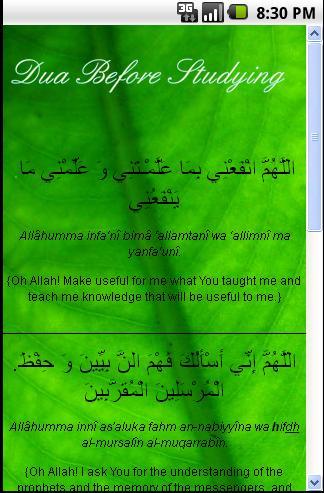 3G
8:30 PM
Dua Before Studying
اللَّهُمَّ انْفَعْنِي بِمَا عَلَّمْتَنِي وَ عَلِّمْنِي مَا.
يَنْفَعُنِي
Allâhumma infa'nî bimâ 'allamtanî wa 'allimnî ma
yanfa'unî.
{Oh Allah! Make useful for me what You taught me and
teach me knowledge that will be useful to me.}
اللَّهُمَّ إِنِّي أَسْأَلُكَ فَهْمَ النَّ بِيِّينَ وَ حِفْظَ.
الْمُرْسَلِينَ الْمُقَرَّبِينَ
Allâhumma innî as'aluka fahm an-nabiyyîna wa hifdh
al-mursalîn al-muqarrabîn.
{Oh Allah! I ask You for the understanding of the
prophets and the memory of the messengers, and